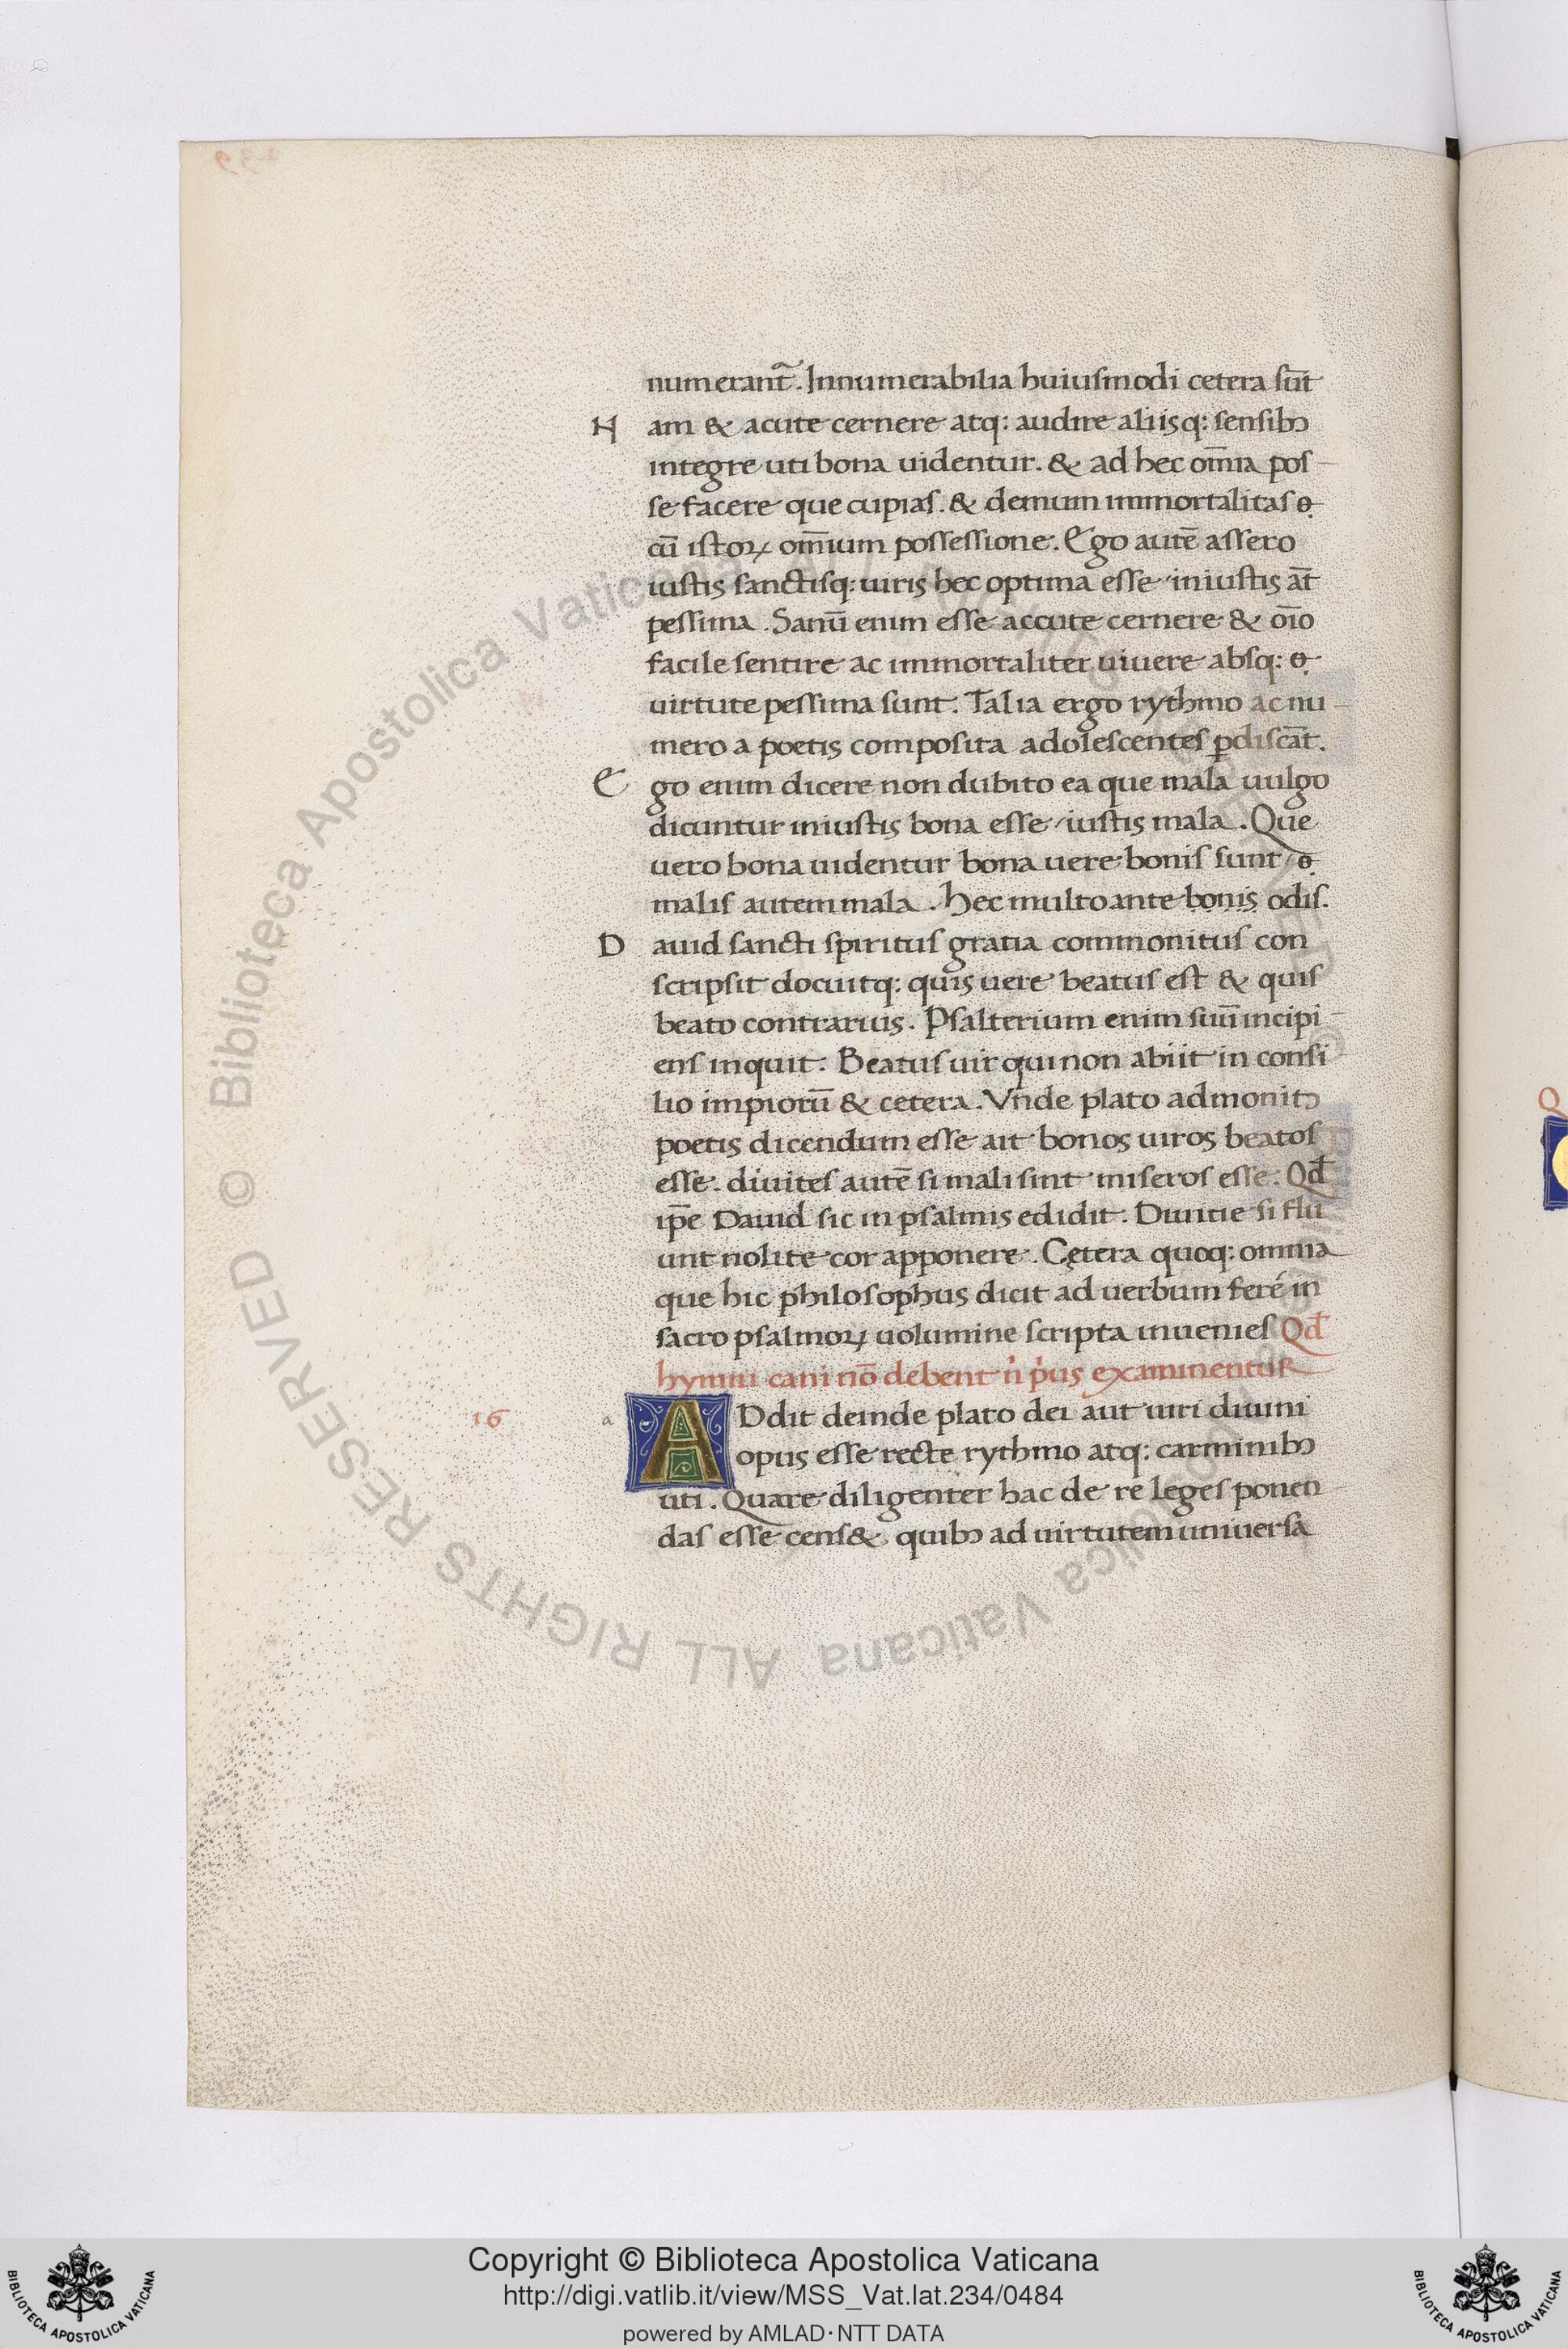 numerant᷑. Innumerabilia huiusmodi cetera sūt
Nam & acute cernere atq: audire aliisq: sensibꝯ
integre uti bona uidentur. & ad hec om̄ia pos-
se facere que cupias. & demum immortalitas
cū istoꝝ om̄ium possessione. Ego autē assero
iustis sanctisq: uiris hec optima esse iniustis āt
pessima. Sanū enim esse accute cernere & oīo
facile sentire ac immortaliter uiuere absq:
uirtute pessima sunt. Talia ergo rythmo ac nu-
mero a poetis composita adolescentes ꝑdiscāt.
Ego enim dicere non dubito ea que mala uulgo
dicuntur iniustis bona esse / iustis mala. Que
uero bona uidentur bona uere bonis sunt /
malis autem mala. Hec multo ante bonis odis.
Dauid sancti spiritus gratia commonitus con
scripsit docuitq: quis uere beatus est & quis
beato contrarius. Psalterium enim suū incipi-
ens inquit: Beatus uir qui non abiit in consi-
lio impiorū & cetera. Vnde plato admonitꝯ
poetis dicendum esse ait bonos uiros beatos
esse. diuites autē si mali sint miseros esse. Qđ
ip̄e Dauid sic in psalmis edidit. Diuitie si flu
unt nolite cor apponere. Cętera quoq: omnia
que hic philosophus dicit ad uerbum feré in
sacro psalmoꝝ uolumine scripta inuenies Qđ
hymni cani nō debent ni p̍us examinentur
16 a ADdit deinde plato dei aut uiri diuini
opus esse recte rythmo atq: carminibꝯ
uti. Quare diligenter hac de re leges ponen
das esse cens&. quibꝯ ad uirtutem uniuersa
Biblioteca Apostolica Vaticana ALL RIGHTS RESERVED ©
Copyright © Biblioteca Apostolica Vaticana
http://digi.vatlib.it/view/MSS_Vat.lat.234/0484
powered by AMLAD·NTT DATA
BIBLIOTECA APOSTOLICA VATICANA
BIBLIOTECA APOSTOLICA VATICANA